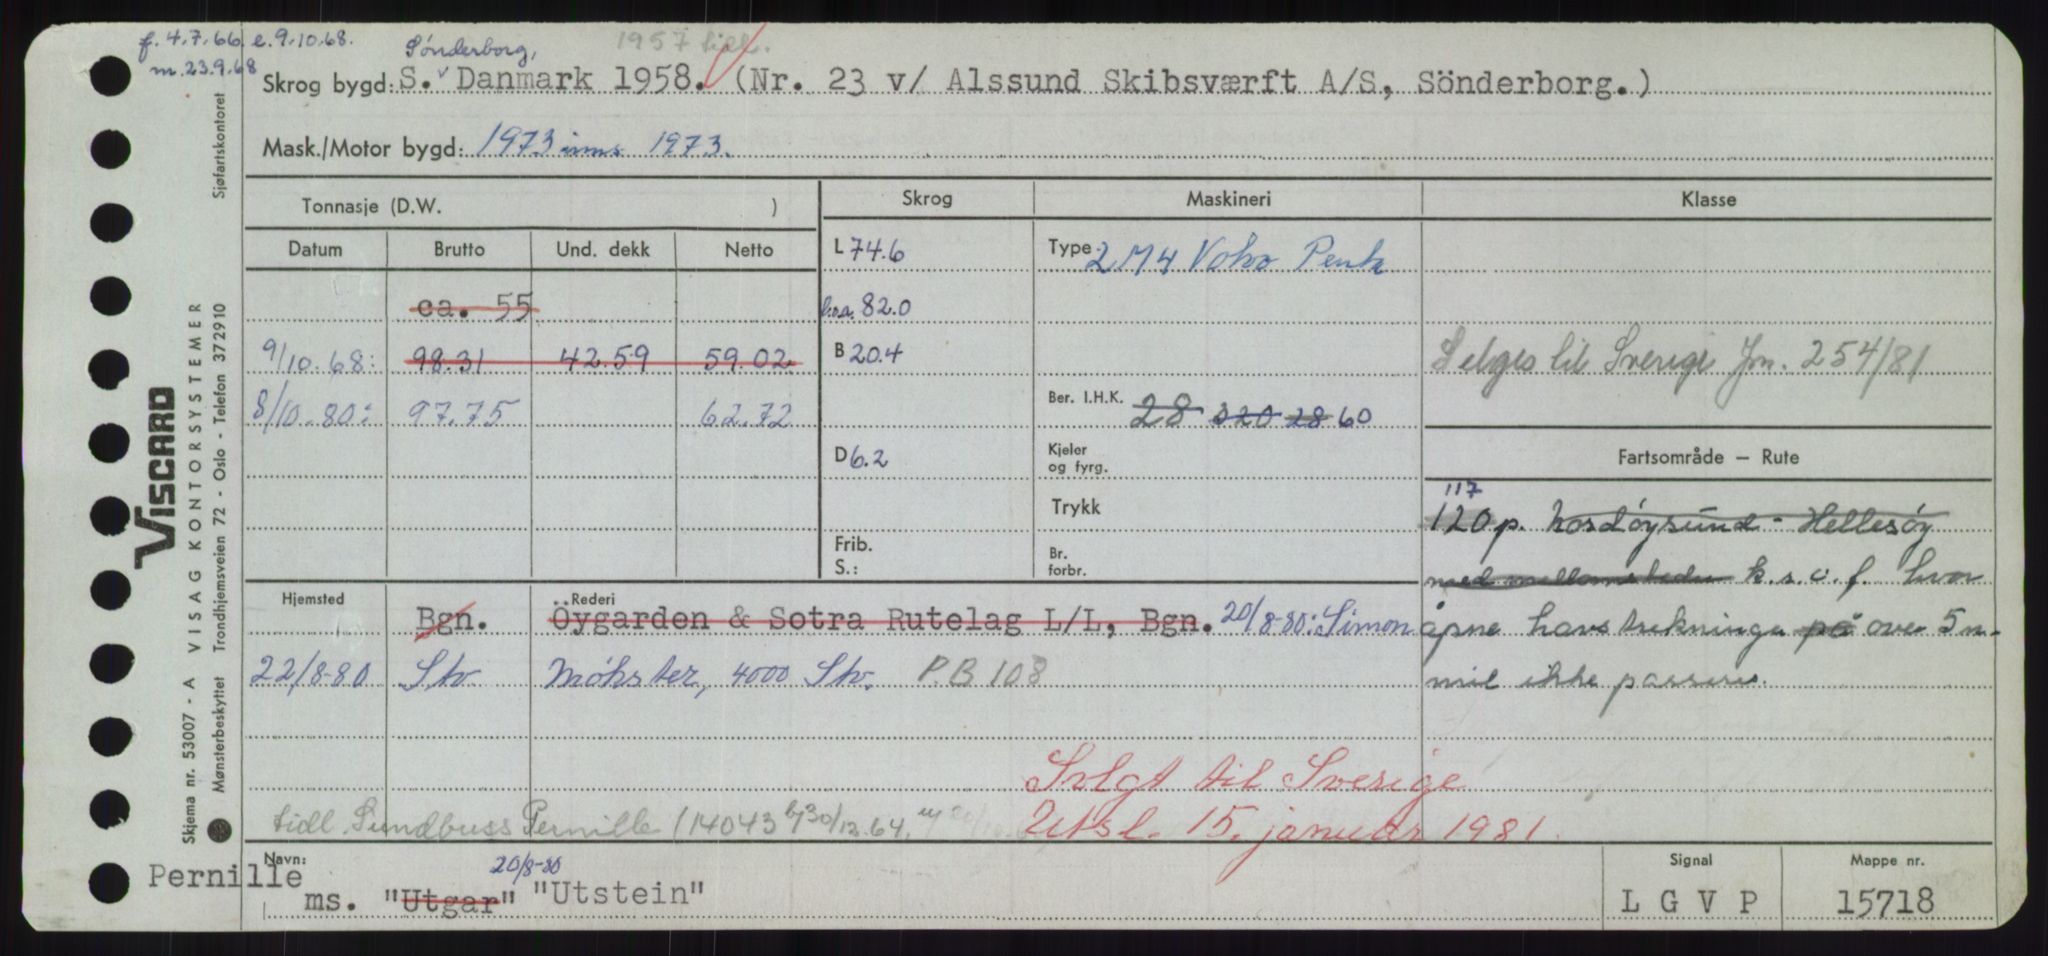 f. 4.7.66. e. 9.10.68.
m. 23.9.68
Sönderborg,
1957 tidl.
Skrog bygd: S. v Danmark 1958. (Nr. 23 v/ Alssund Skibsværft A/S, Sönderborg.)
Mask./Motor bygd: 1973 inns 1973.
Tonnasje (D.W. )
Skrog
Maskineri
Klasse
Datum Brutto Und. dekk Netto
L 74.6
Type 2 M4 Volvo Penta
ca. 55
l.o.a. 82.0
9/10.68: 98.31 42.59 59.02
B 20.4
Selges til Sverige Jn. 254/81
8/10-80: 97.75 62.72
Ber. I.H.K. 28 320 28 60
D 6.2
Kjeler
og fyrg.
Fartsområde — Rute
Trykk
117
120 p. Nordöysund - Hellesöy
Frib.
S.:
Br.
forbr.
med mellomsteder k.s.o.f. hvor
Hjemsted Rederi
Bgn. Öygarden & Sotra Rutelag L/L, Bgn. 20/8-80: Simon
åpne havstrekninger på over 5 n-
22/8-80 Stv Møkster, 4000 Stv. P.B 108
mil ikke passeres.
Solgt til Sverige
tidl. Sundbuss Pernille (14043 30/12.64,
Utsl. 15. januar 1981.
Navn:
20/8-80
Pernille
ms. "Utgar" "Utstein"
Signal
L G V P
Mappe nr.
15718
VISCARD
VISAG KONTORSYSTEMER
Trondhjemsveien 72 - Oslo - Telefon 372910
Sjøfartskontoret
Skjema nr. 53007 - A
Mønsterbeskyttet